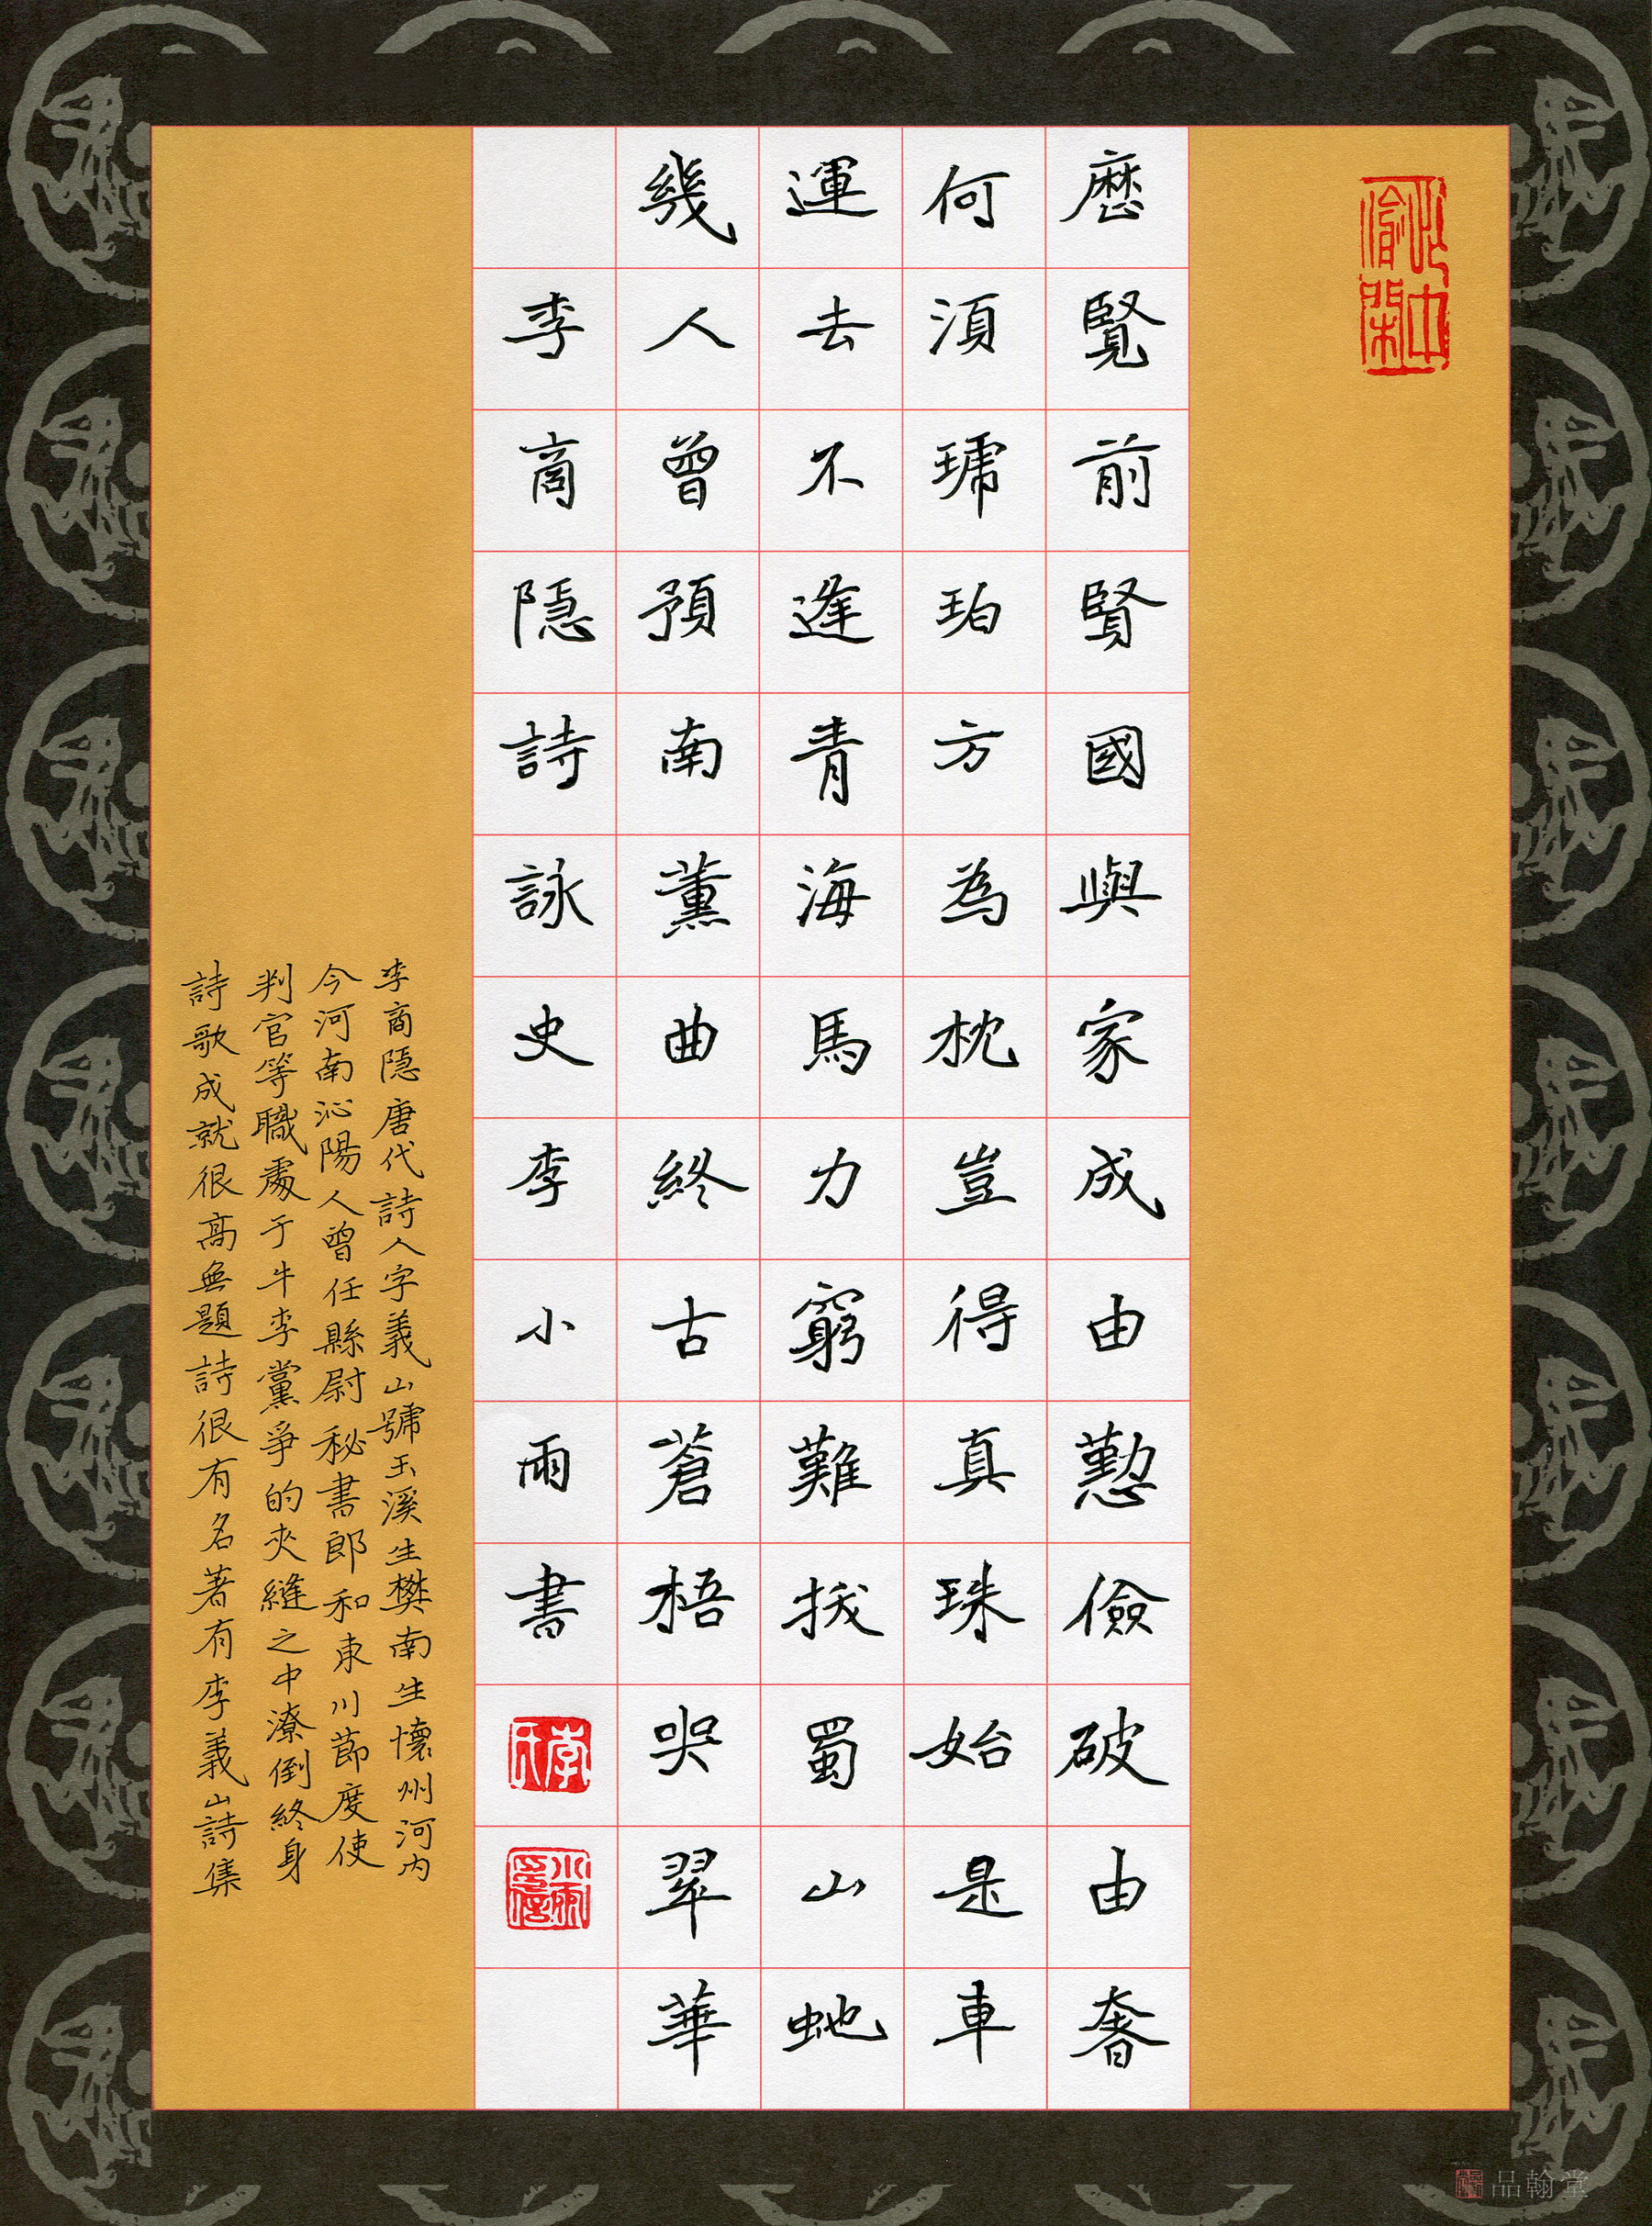 歷覽前賢國與家成由懃儉破由奢
何須琥珀方為枕豈得真珠始是車
運去不逢青海馬力窮難拔蜀山虵
幾人曾預南薰曲終古蒼梧哭翠華
李商隱詩詠史李小雨書
李氏
小雨印信
李商隱唐代詩人字義山號玉溪生樊南生懷州河内
今河南沁陽人曾任縣尉秘書郎和東川節度使
判官等職處于牛李黨爭的夾縫之中潦倒終身
詩歌成就很高無題詩很有名著有李義山詩集
品翰堂